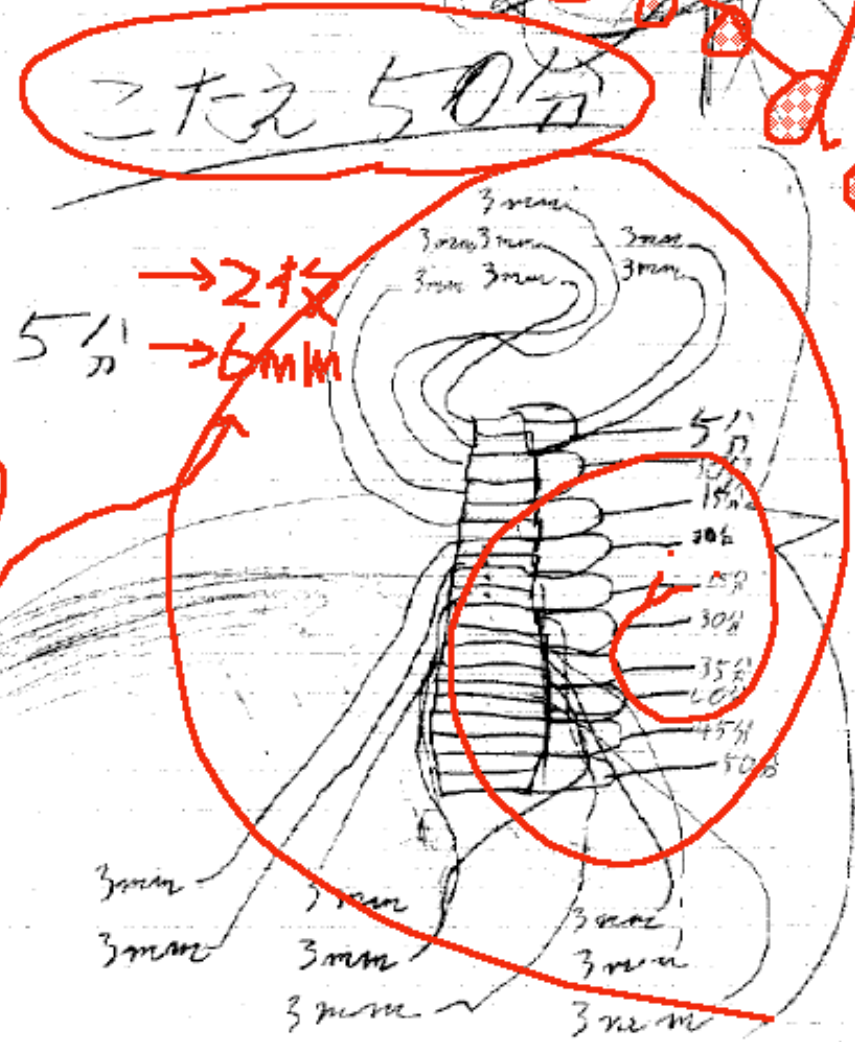 こたえ 50分
3mm
3mm 3mm 3mm
3mm 3mm 3mm
→2枚
5分 →6mm
5分
15分
25分
30分
35分
40分
45分
50分
3mm 3mm 3mm
3mm 3mm 3mm
3mm 3mm